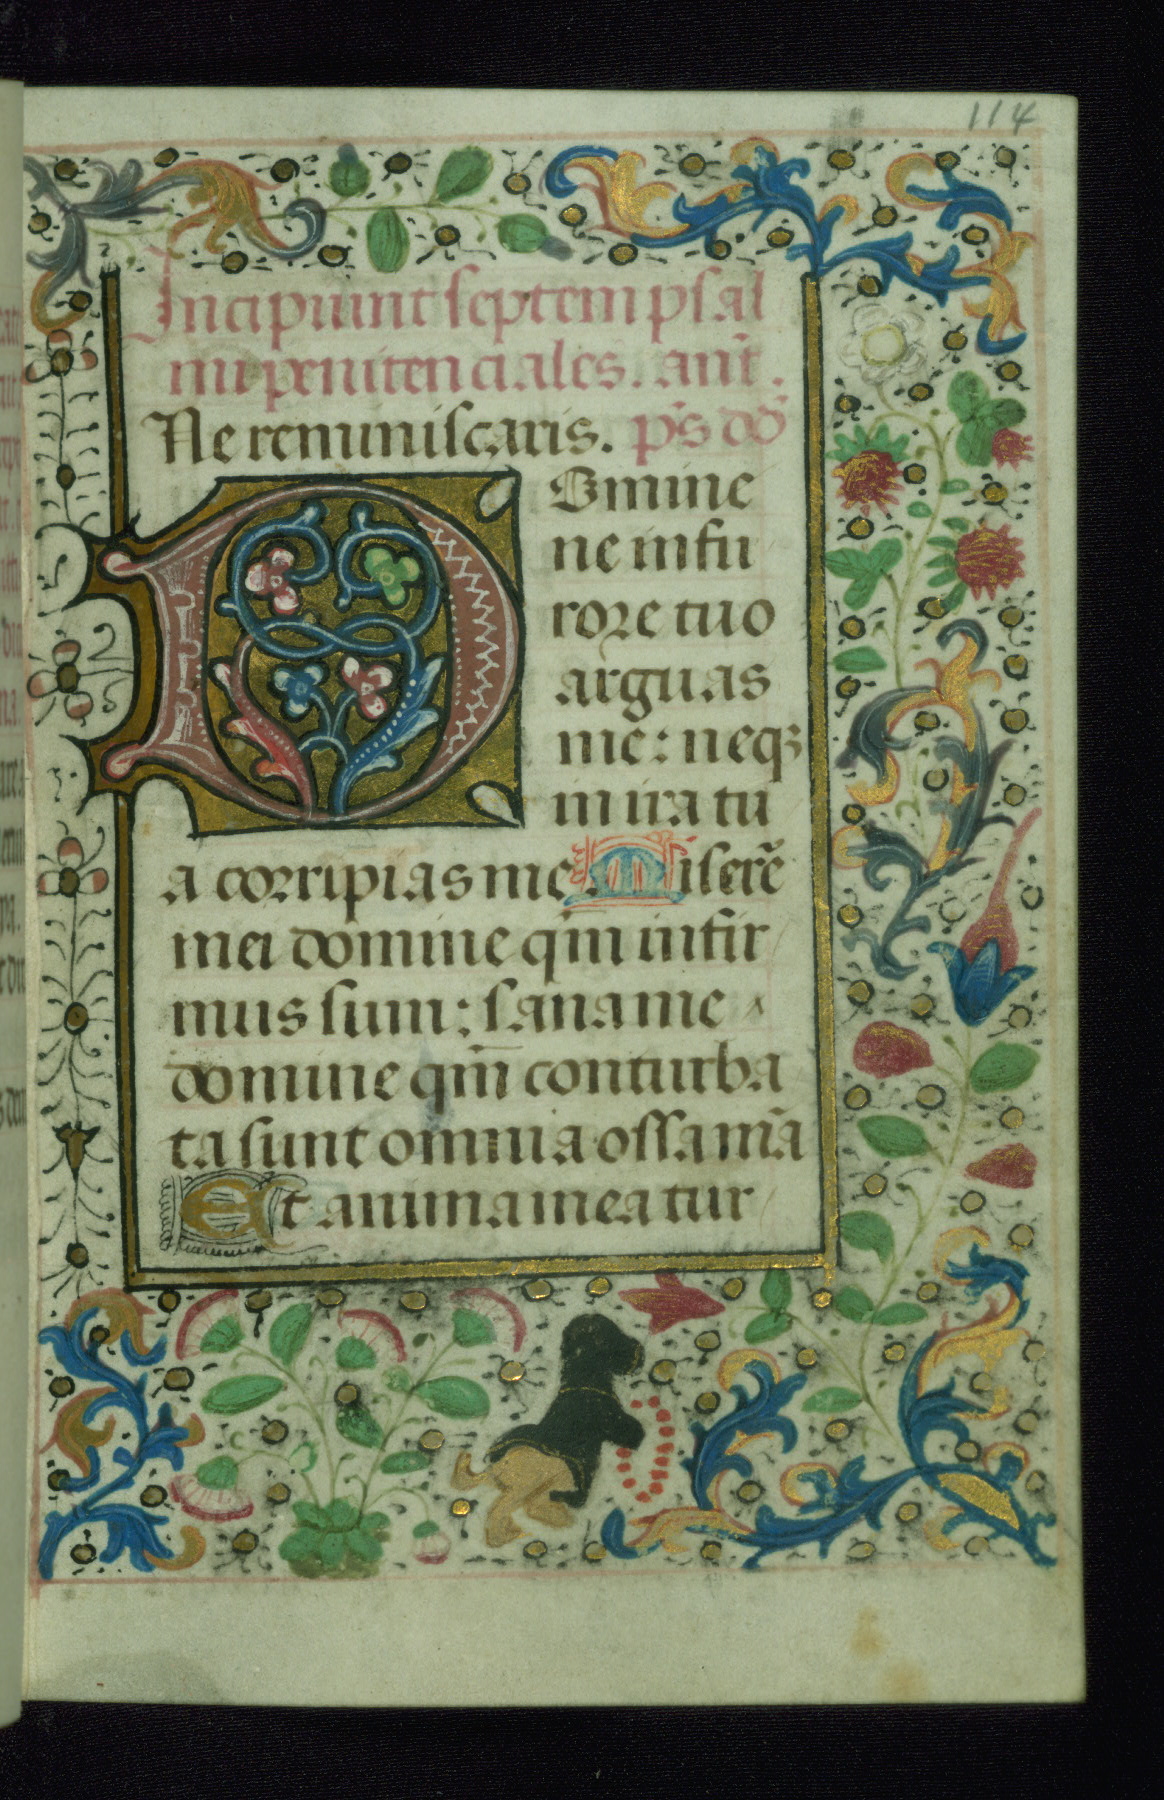 114
Incipiunt septem psal
mi penitenciales. an̄t.
Ne reminiscaris. p̄s dd̄
Domine
ne in fu
rore tuo
arguas
me: neqꝫ
in ira tu
a corripias me. Miserē
mei domine qm̄ infir
mus sum: sana me
domine qm̄ conturba
ta sunt omnia ossa mā
Et anima mea tur